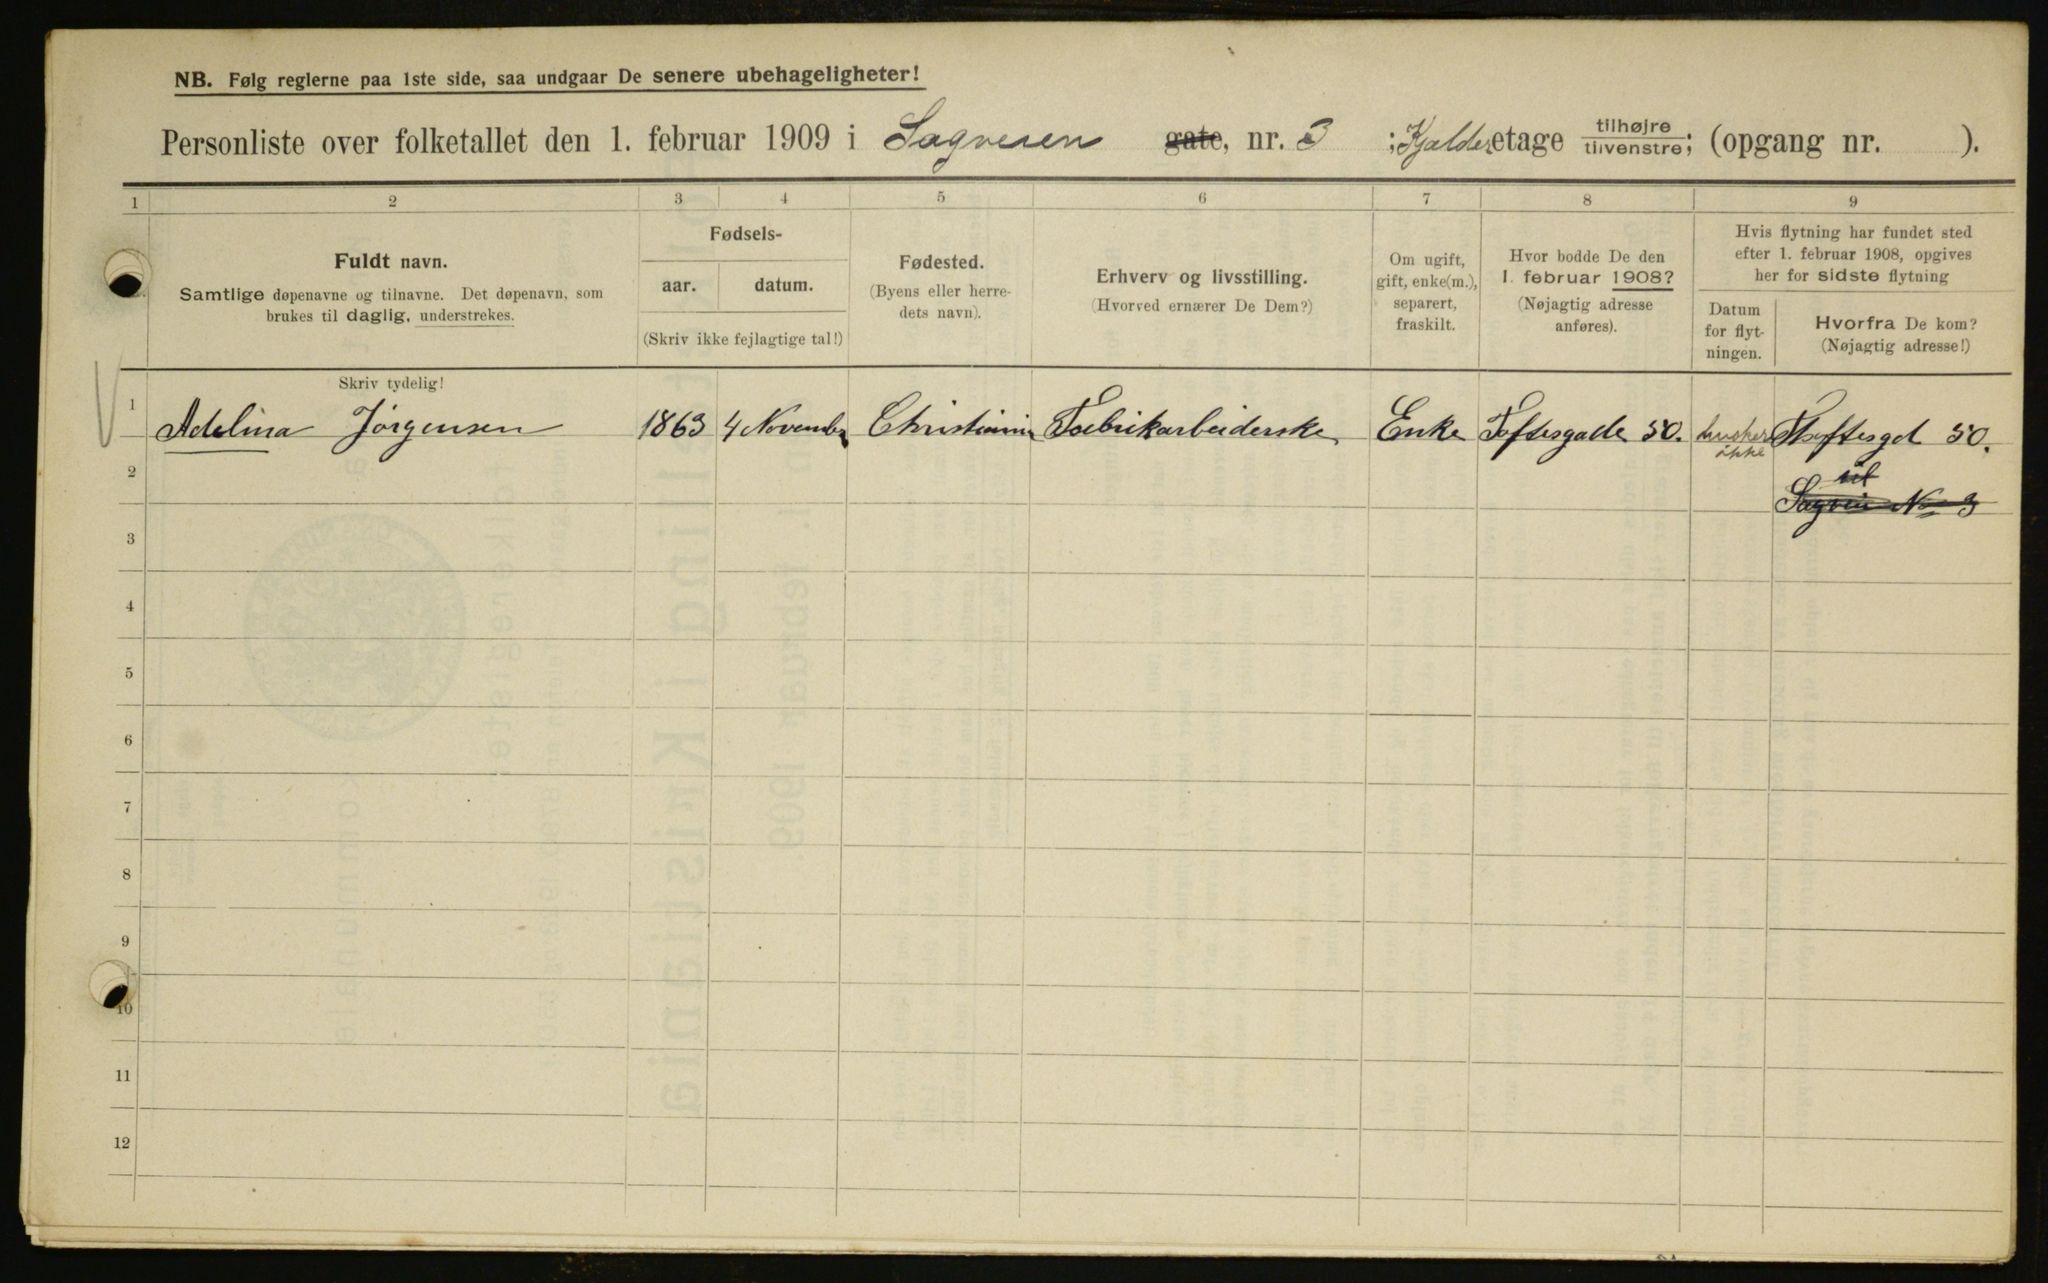 NB. Følg reglerne paa 1ste side, saa undgaar De senere ubehageligheter!
Personliste over folketallet den 1. februar 1909 i Sagveien gate, nr. 3 ; Kjelder etage tilhøjre tilvenstre; (opgang nr. ).
1 2 3 4 5 6 7 8 9
Fuldt navn.
Samtlige døpenavne og tilnavne. Det døpenavn, som
brukes til daglig, understrekes.
Fødsels-
aar. datum.
(Skriv ikke fejlagtige tal!)
Fødested.
(Byens eller herre-
dets navn).
Erhverv og livsstilling.
(Hvorved ernærer De Dem?)
Om ugift,
gift, enke(m.),
separert,
fraskilt.
Hvor bodde De den
1. februar 1908?
(Nøjagtig adresse
anføres).
Hvis flytning har fundet sted
efter 1. februar 1908, opgives
her for sidste flytning
Datum
for flyt-
ningen.
Hvorfra De kom?
(Nøjagtig adresse!)
Skriv tydelig!
1 Adelina Jørgensen 1863 4 November Christiania Fabrikarbeiderske Enke Toftesgade 50. husker ikke Thoftesgd 50.
til
Sagvein No 3
2
3
4
5
6
7
8
9
10
11
12